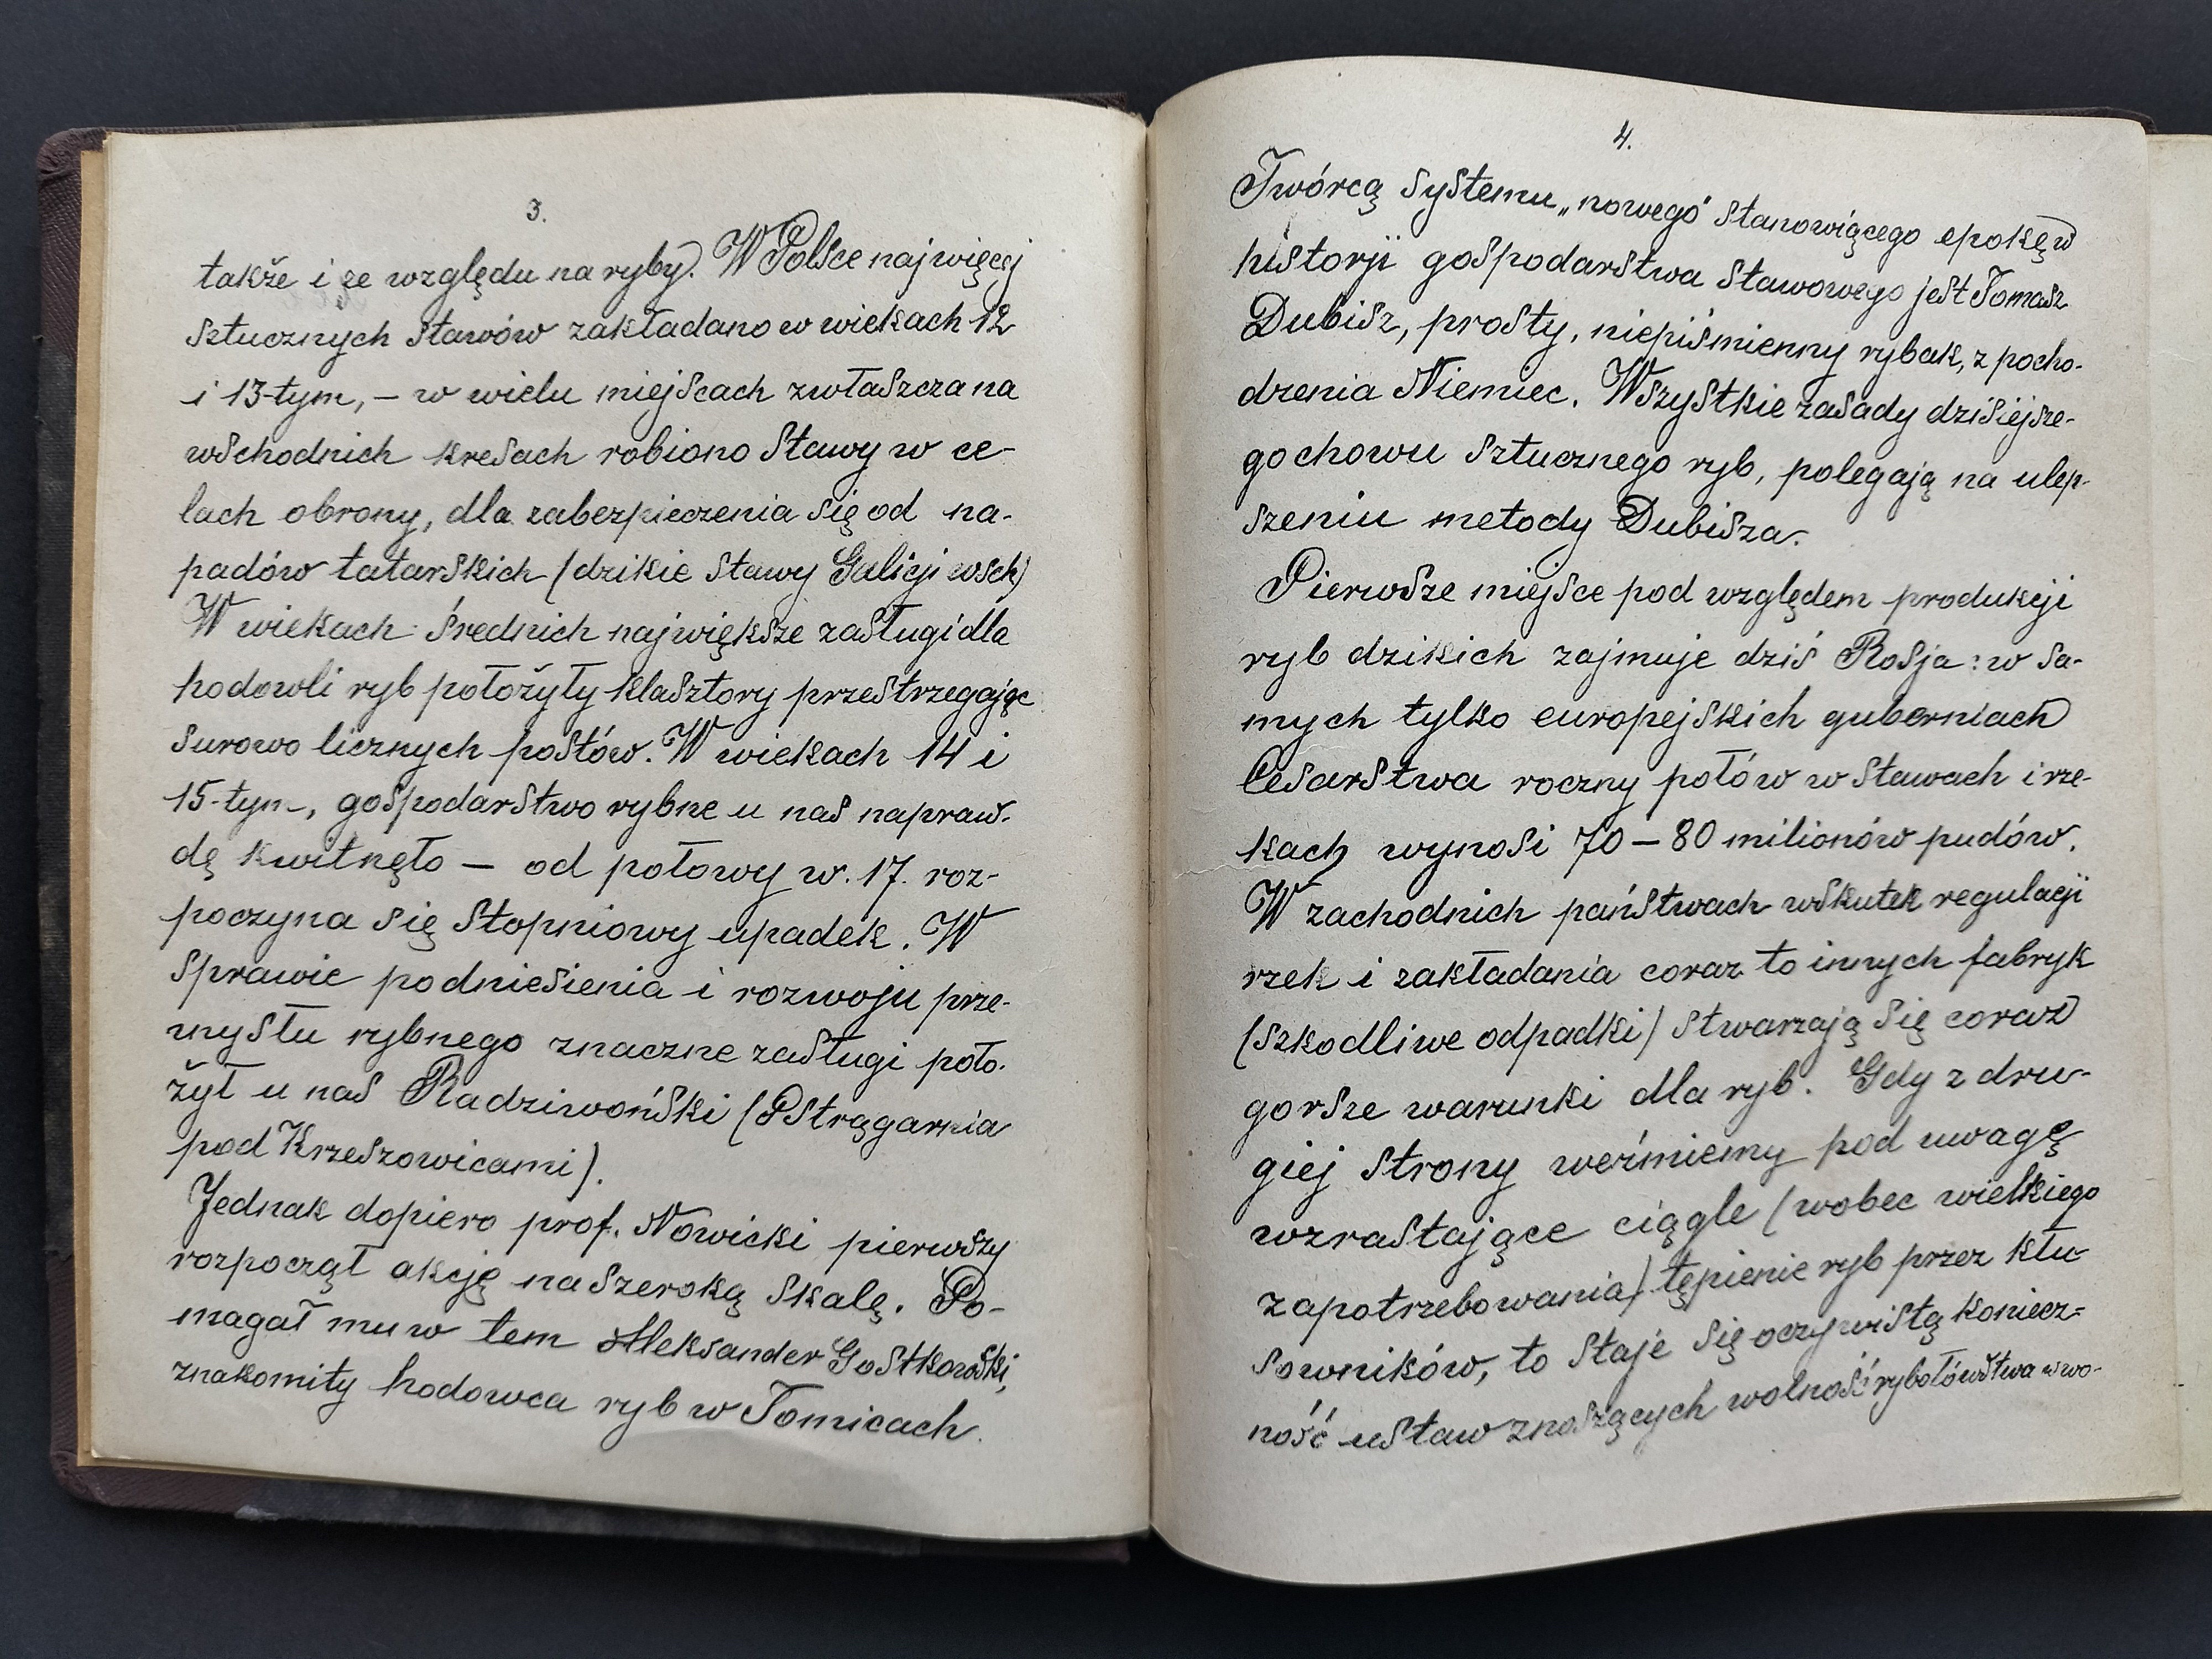 3.
także i ze względu na ryby). W Polsce najwięcej
sztucznych stawów zakładano w wiekach 12
i 13-tym, – w wielu miejscach zwłaszcza na
wschodnich kresach robiono stawy w ce-
lach obrony, dla zabezpieczenia się od na-
padów tatarskich (dzikie stawy Galicji wsch)
W wiekach średnich największe zasługi dla
hodowli ryb położyły klasztory przestrzegając
surowo licznych postów. W wiekach 14 i
15-tym, gospodarstwo rybne u nas napraw-
dę kwitnęło — od połowy w. 17. roz-
poczyna się stopniowy upadek. W
sprawie podniesienia i rozwoju prze-
mysłu rybnego znaczne zasługi poło-
żył u nas Radziwoński (Pstrągarnia
pod Krzeszowicami).
Jednak dopiero prof. Nowicki pierwszy
rozpoczął akcję na szeroką skalę. Po-
magał mu w tem Aleksander Gostkowski,
znakomity hodowca ryb w Tomicach.
4.
Twórcą systemu „nowego" stanowiącego epokę w
historji gospodarstwa stawowego jest Tomasz
Dubisz, prosty, niepiśmienny rybak, z pocho-
dzenia Niemiec. Wszystkie zasady dzisiejsze-
go chowu sztucznego ryb, polegają na ulep-
szeniu metody Dubisza.
Pierwsze miejsce pod względem produkcji
ryb dzikich zajmuje dziś Rosja: w sa-
mych tylko europejskich guberniach
Cesarstwa roczny połów w stawach i rze-
kach wynosi 70 – 80 milionów pudów.
W zachodnich państwach wskutek regulacji
rzek i zakładania coraz to innych fabryk
(szkodliwe odpadki) stwarzają się coraz
gorsze warunki dla ryb. Gdy z dru-
giej strony weźmiemy pod uwagę
wzrastające ciągle (wobec wielkiego
zapotrzebowania) tępienie ryb przez kłu-
sowników, to staje się oczywistą koniecz-
ność ustaw znoszących wolność rybołówstwa w wo-